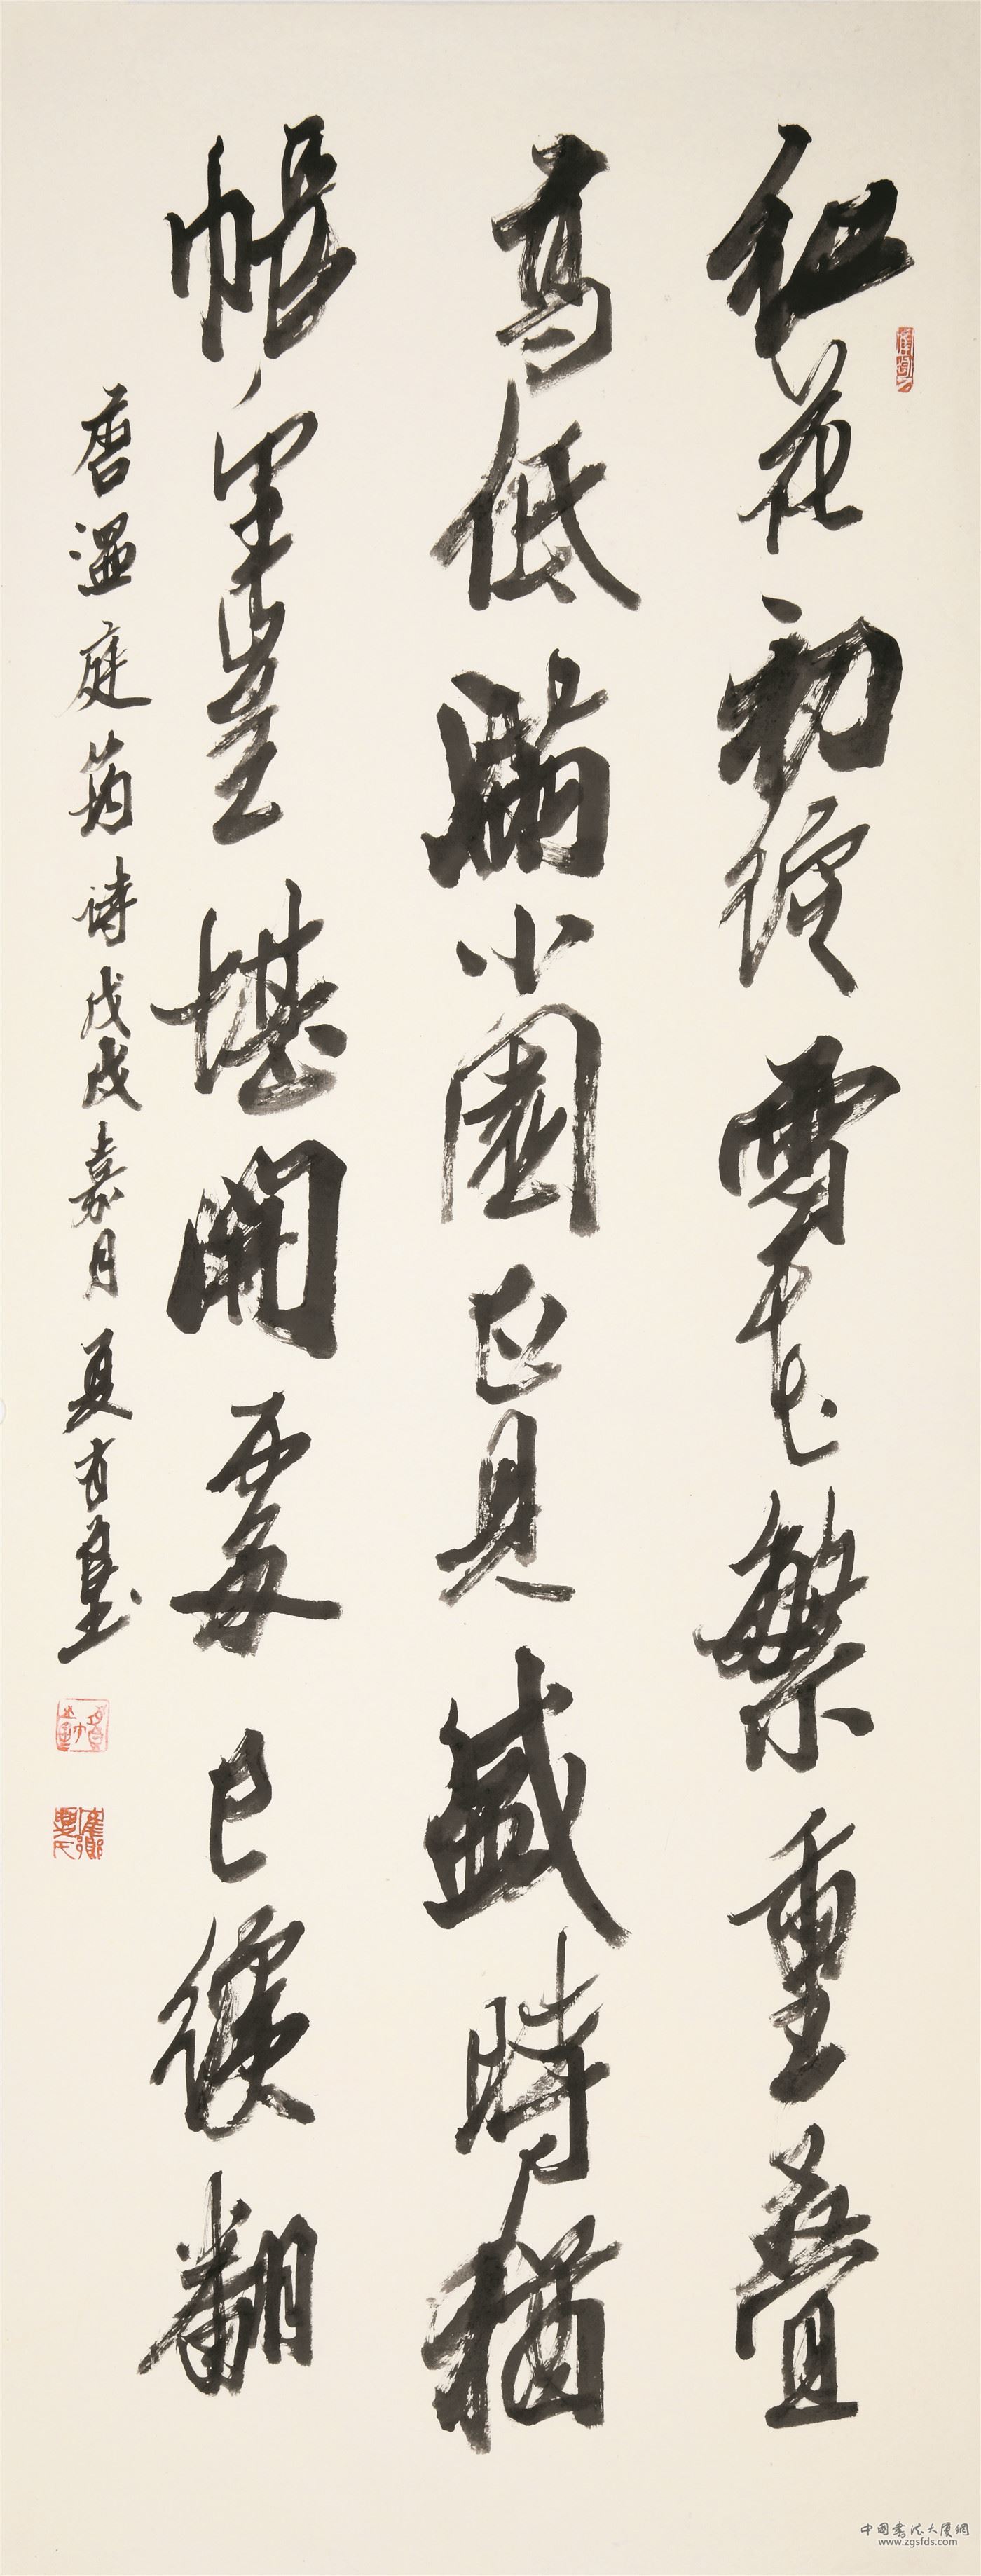 紅花初綻雪花繁重叠
高低滿小園正見盛時猶
悵望豈堪開處已繽翻
唐溫庭筠诗戊戌嘉月夏
中國書法大厦網
www.zgsfds.com